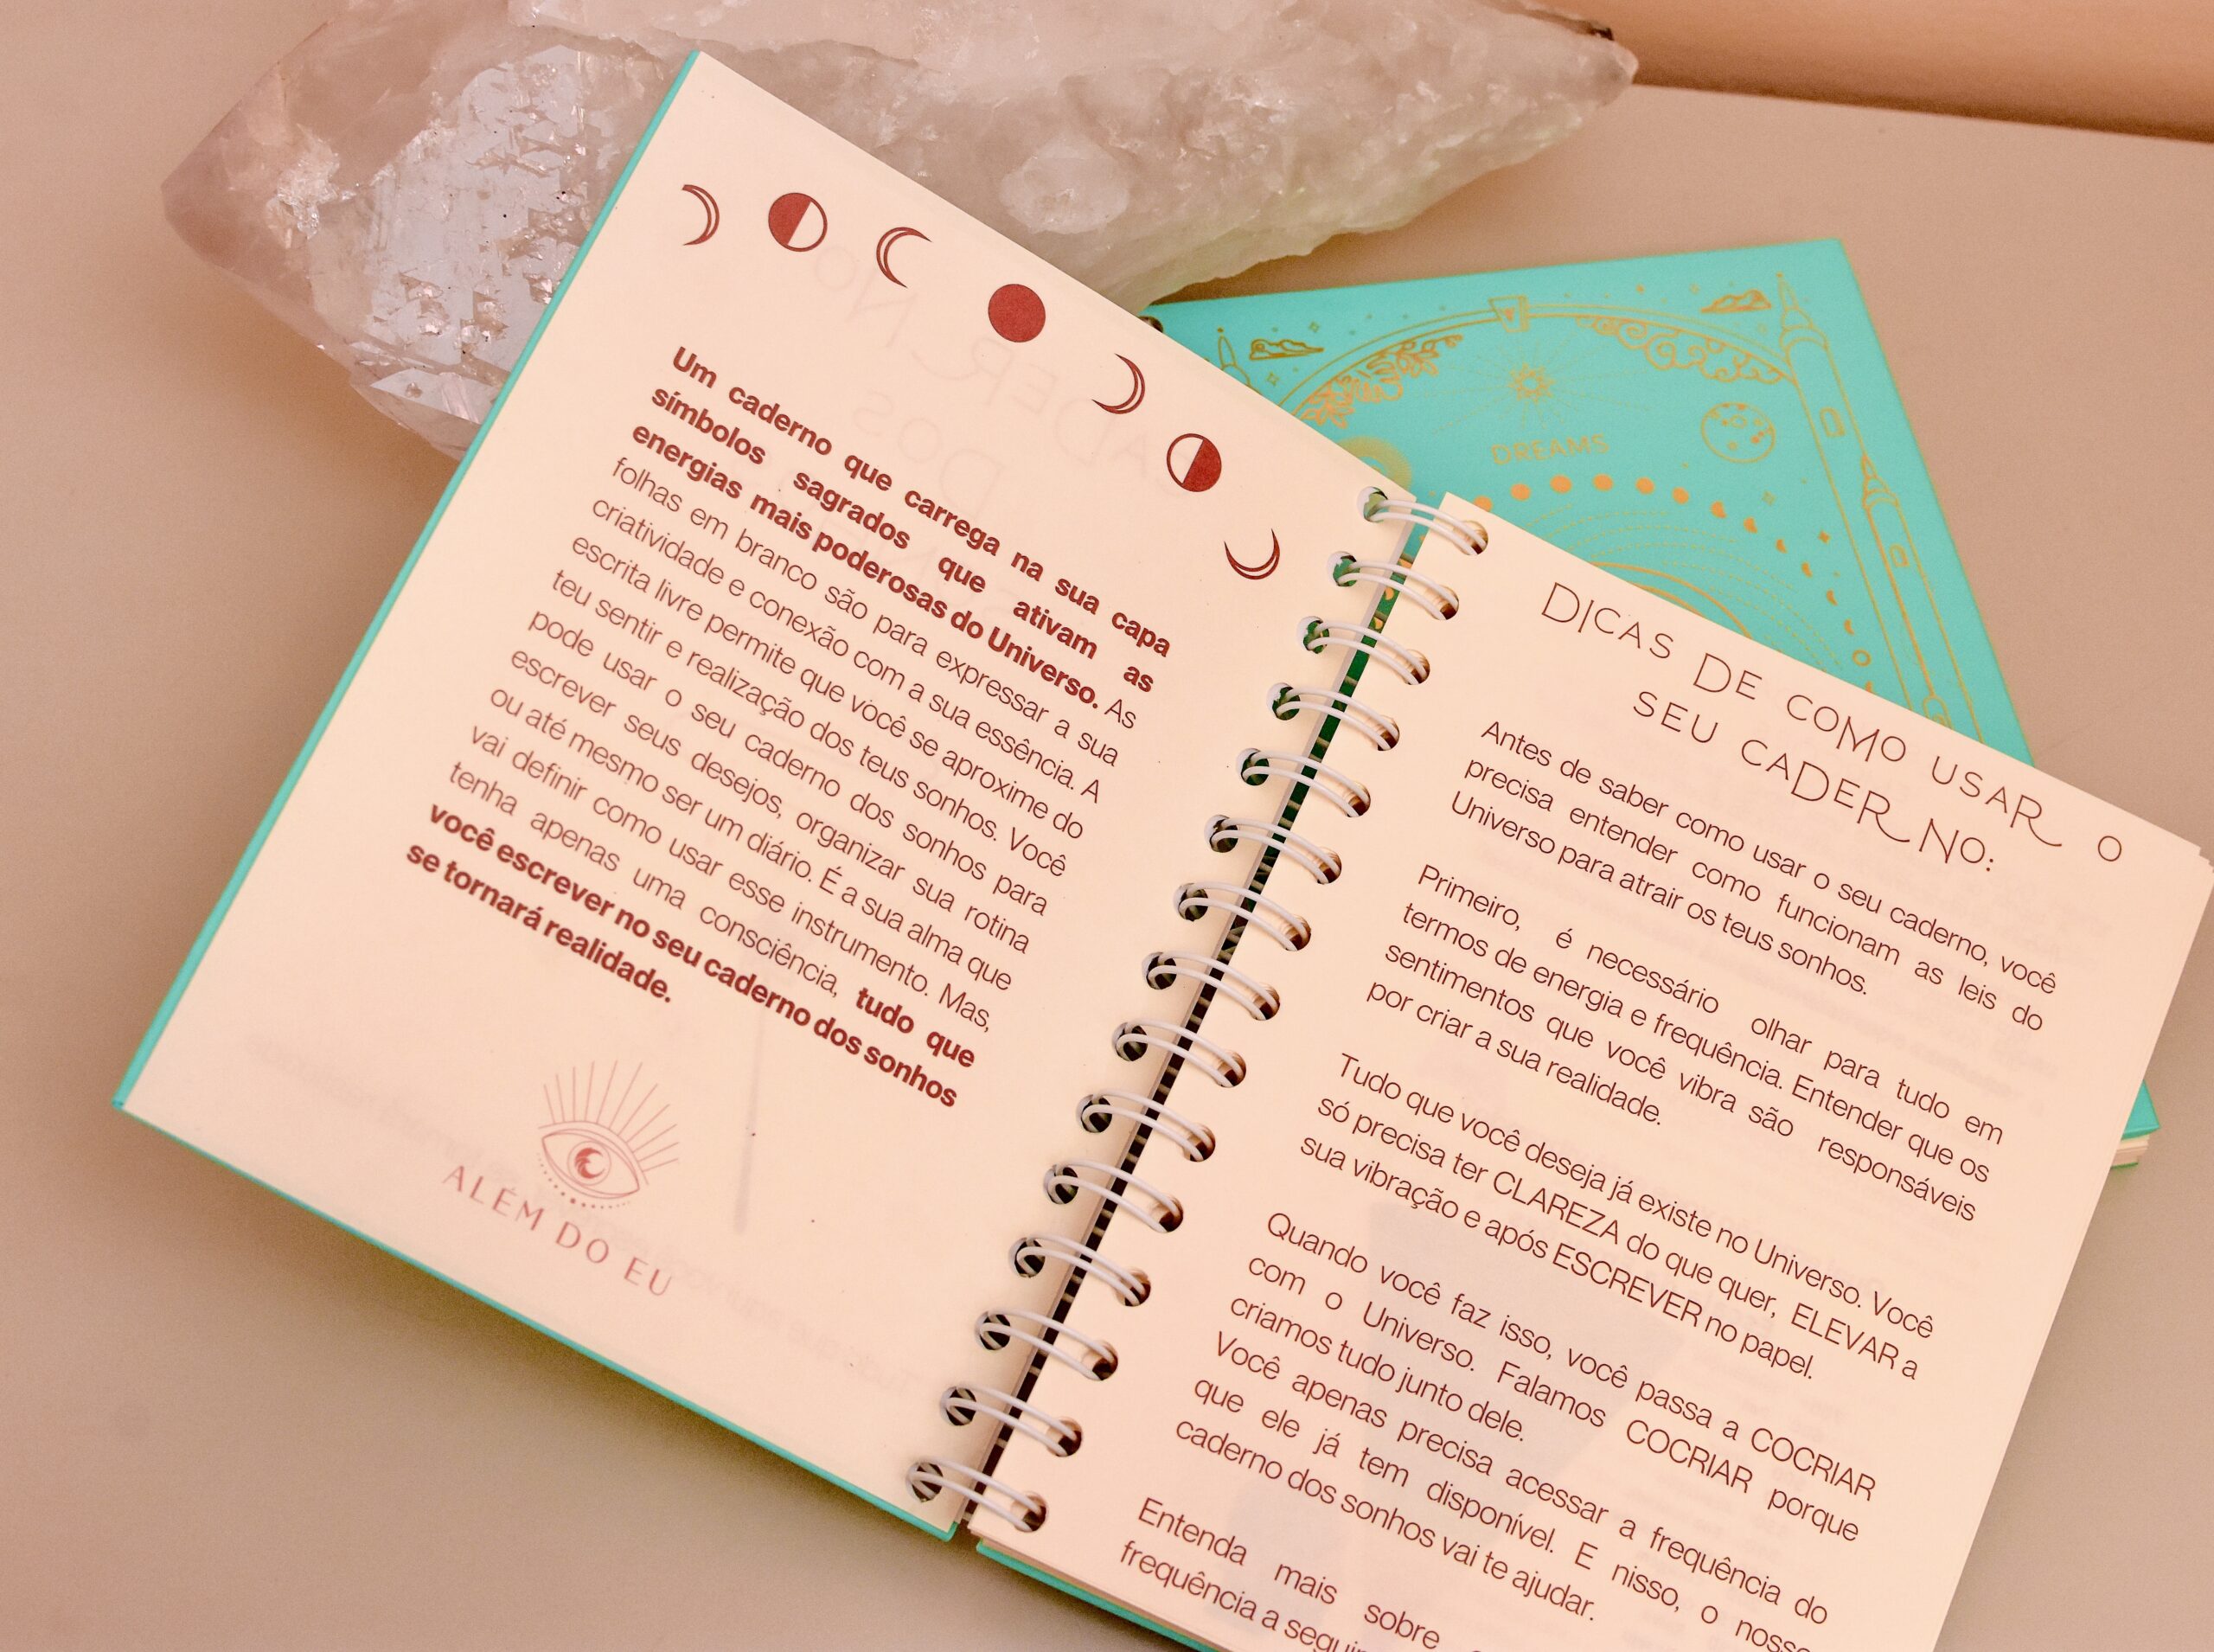 Um caderno que carrega na sua capa
símbolos sagrados que ativam as
energias mais poderosas do Universo. As
folhas em branco são para expressar a sua
criatividade e conexão com a sua essência. A
escrita livre permite que você se aproxime do
teu sentir e realização dos teus sonhos. Você
pode usar o seu caderno dos sonhos para
escrever seus desejos, organizar sua rotina
ou até mesmo ser um diário. É a sua alma que
vai definir como usar esse instrumento. Mas,
tenha apenas uma consciência, tudo que
você escrever no seu caderno dos sonhos
se tornará realidade.
ALÉM DO EU
DREAMS
DICAS DE COMO USAR O
SEU CADERNO:
Antes de saber como usar o seu caderno, você
precisa entender como funcionam as leis do
Universo para atrair os teus sonhos.
Primeiro, é necessário olhar para tudo em
termos de energia e frequência. Entender que os
sentimentos que você vibra são responsáveis
por criar a sua realidade.
Tudo que você deseja já existe no Universo. Você
só precisa ter CLAREZA do que quer, ELEVAR a
sua vibração e após ESCREVER no papel.
Quando você faz isso, você passa a COCRIAR
com o Universo. Falamos COCRIAR porque
criamos tudo junto dele.
Você apenas precisa acessar a frequência do
que ele já tem disponível. E nisso, o nosso
caderno dos sonhos vai te ajudar.
Entenda mais sobre
frequência a seguir